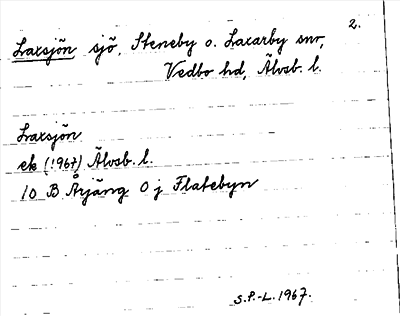 2.
Laxsjön sjö, Steneby o. Laxarby snr,
Vedbo hd, Älvsb. l.
Laxsjön
ek (1967) Älvsb. l.
10 B Årjäng 0 j Flatebyn
S.P.-L. 1967.